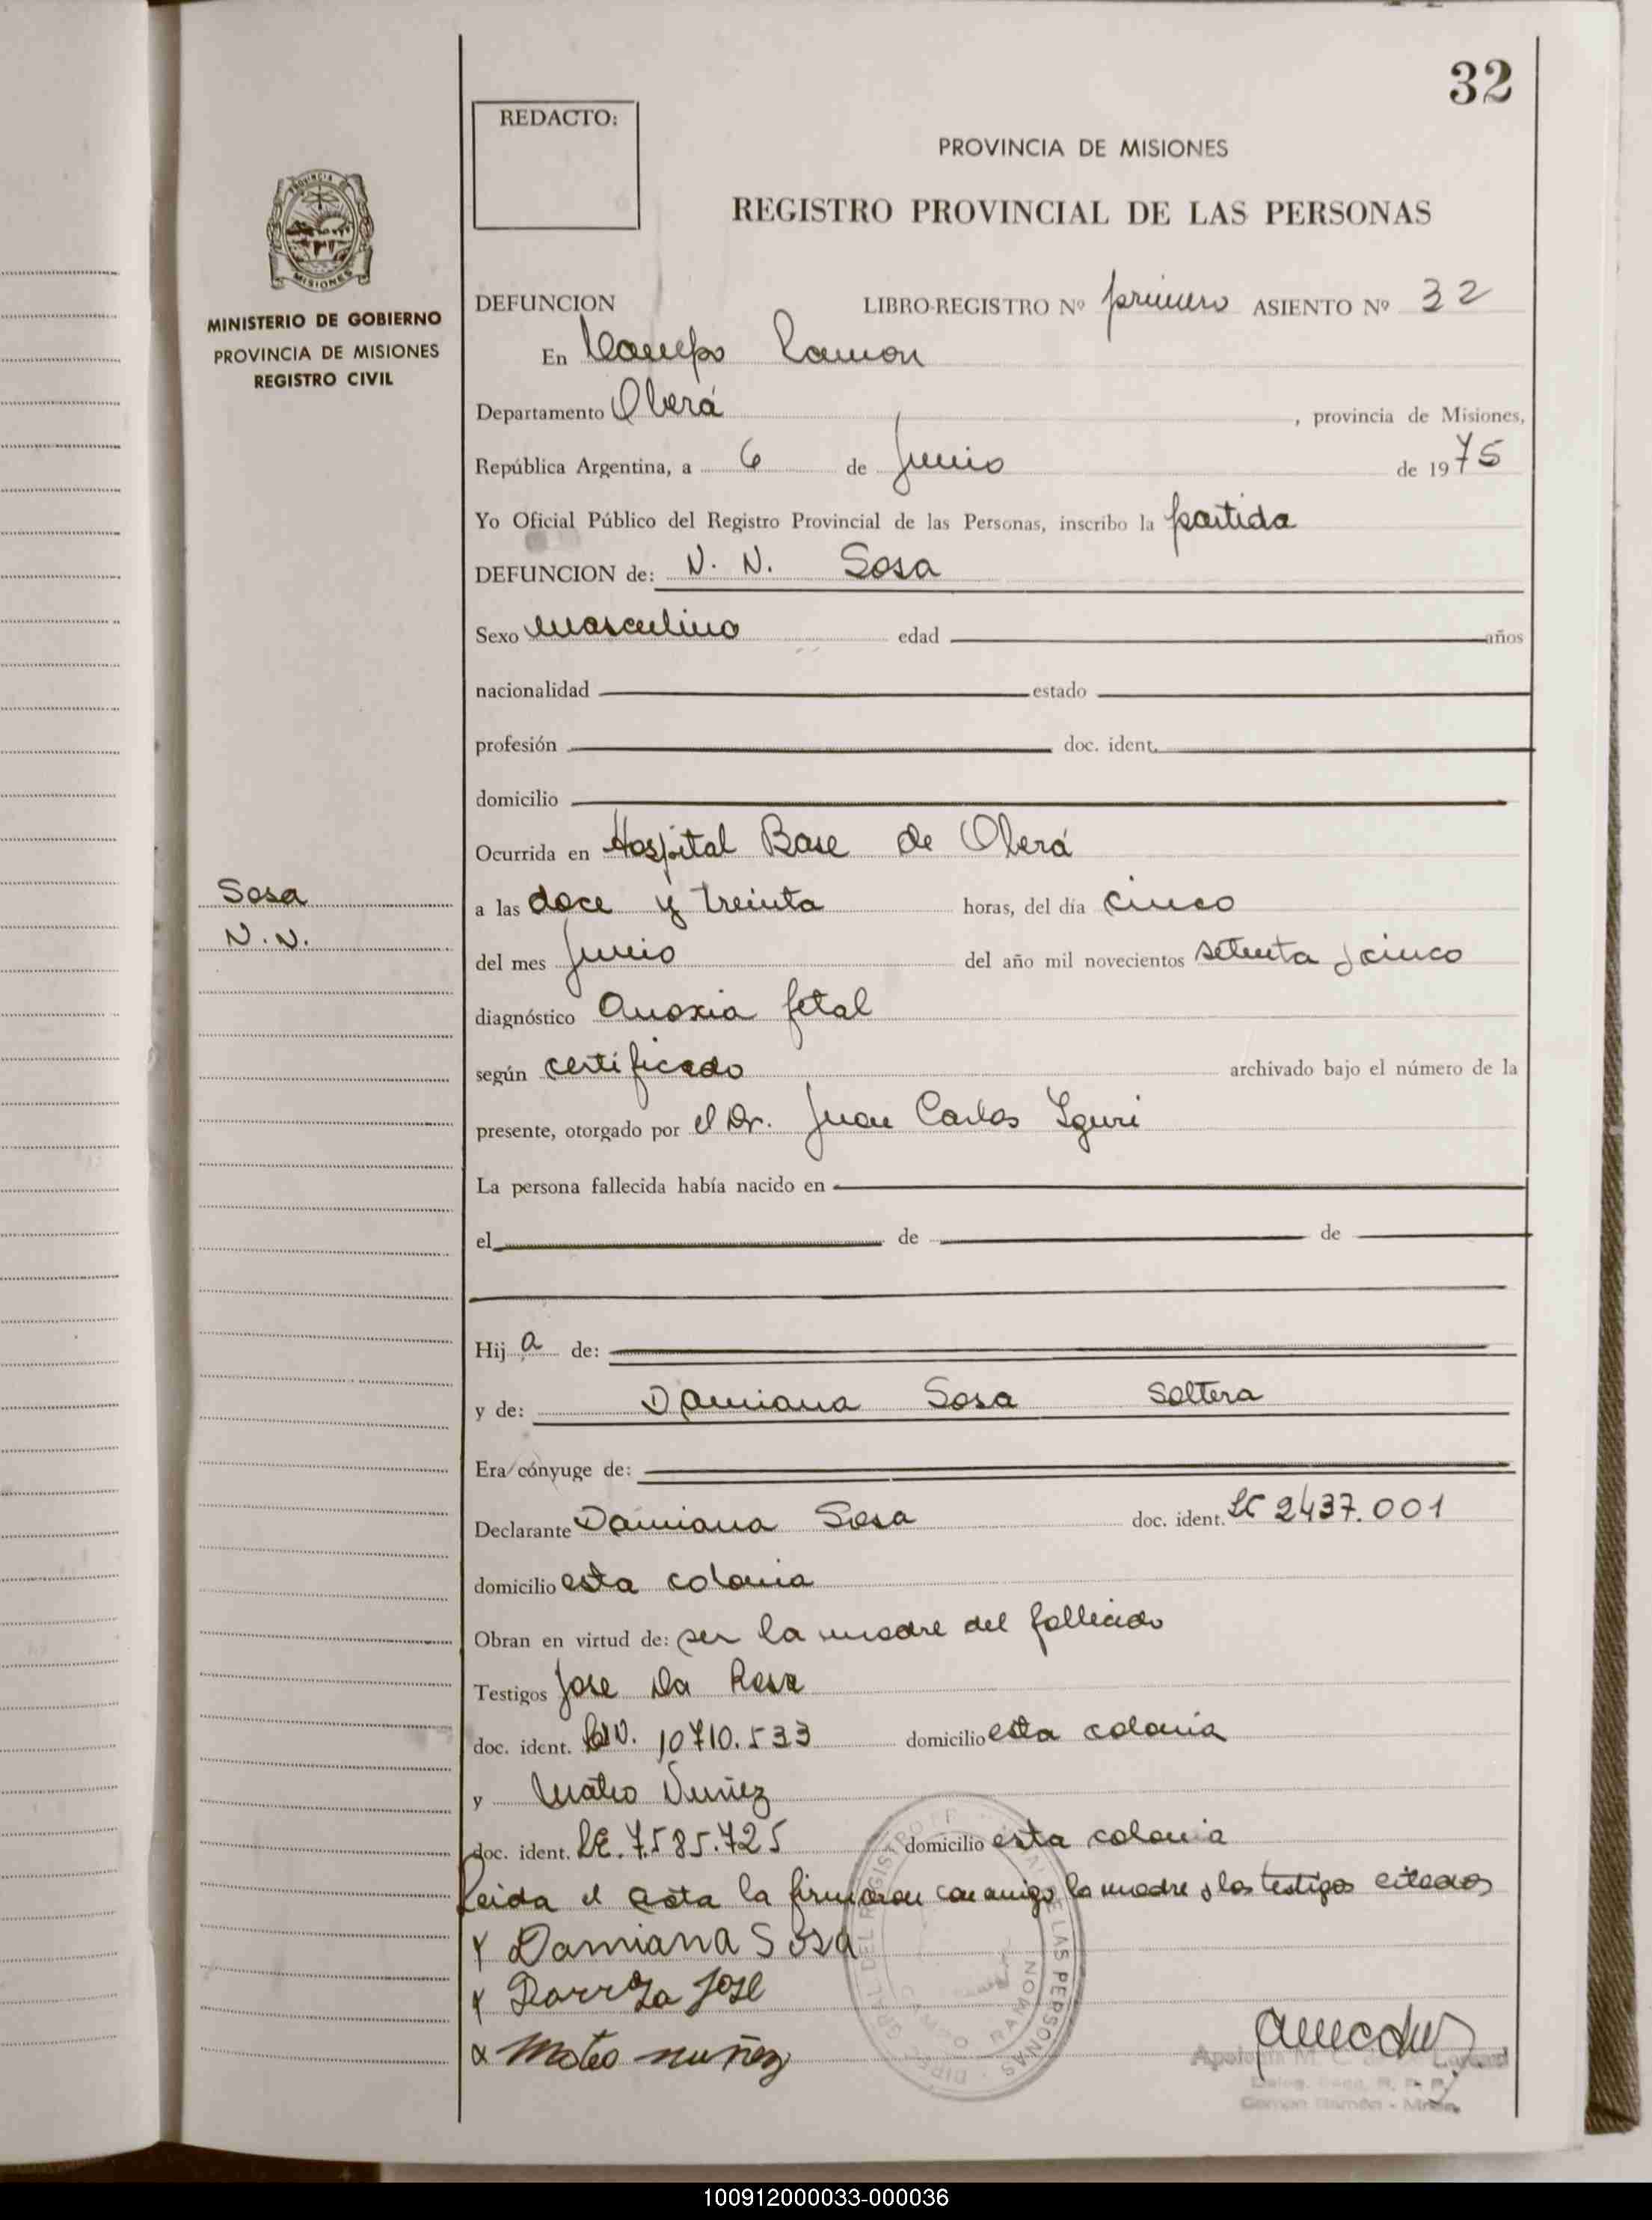 32
REDACTO:
PROVINCIA DE MISIONES
REGISTRO PROVINCIAL DE LAS PERSONAS
PROVINCIA DE
MISIONES
MINISTERIO DE GOBIERNO
PROVINCIA DE MISIONES
REGISTRO CIVIL
DEFUNCION LIBRO-REGISTRO Nº primero ASIENTO Nº 32
En Campo Ramon
Departamento Oberá, provincia de Misiones,
República Argentina, a 6 de Junio de 1975
Yo Oficial Público del Registro Provincial de las Personas, inscribo la partida
DEFUNCION de: N. N. Sosa
Sexo masculino edad años
nacionalidad estado
profesión doc. ident.
domicilio
Ocurrida en Hospital Base de Oberá
Sosa
N.N.
a las doce y treinta horas, del día cinco
del mes Junio del año mil novecientos setenta y cinco
diagnóstico Anoxia fetal
según certificado archivado bajo el número de la
presente, otorgado por el Dr. Juan Carlos Iguri
La persona fallecida había nacido en
el de de
Hij a de:
y de: Damiana Sosa Soltera
Era cónyuge de:
Declarante Damiana Sosa doc. ident. LC 2437.001
domicilio esta colonia
Obran en virtud de: ser la madre del fallecido
Testigos Jose Da Rosa
doc. ident. 10710.533 domicilio esta colonia
y Mateo Nuñez
doc. ident. LE. 7.585.725 domicilio esta colonia
Leida el acta la firmaron conmigo la madre y los testigos citados
x Damiana Sosa
x Darroza Jose
x Mateo nuñez
DIREC. GRAL DEL REGISTRO DE LAS PERSONAS
CAMPO RAMON
100912000033-000036